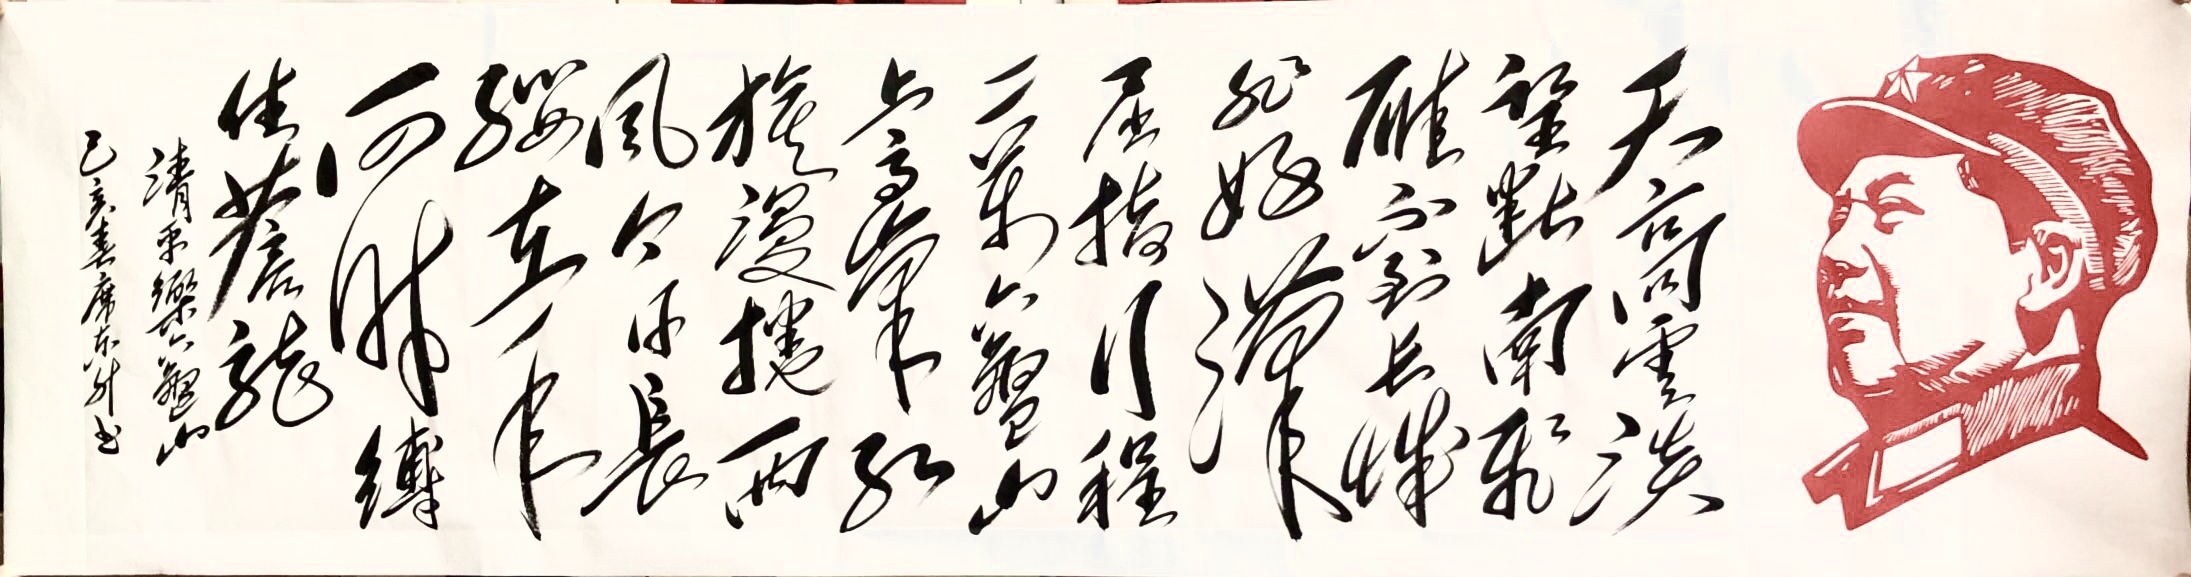 天高雲淡
望斷南飛
雁不到长城
非好漢
屈指行程
二萬六盤山
上高峰紅
旗漫捲西
風今日長
纓在手
何時縛
住蒼龍
清平樂六盤山
己亥春席东升书